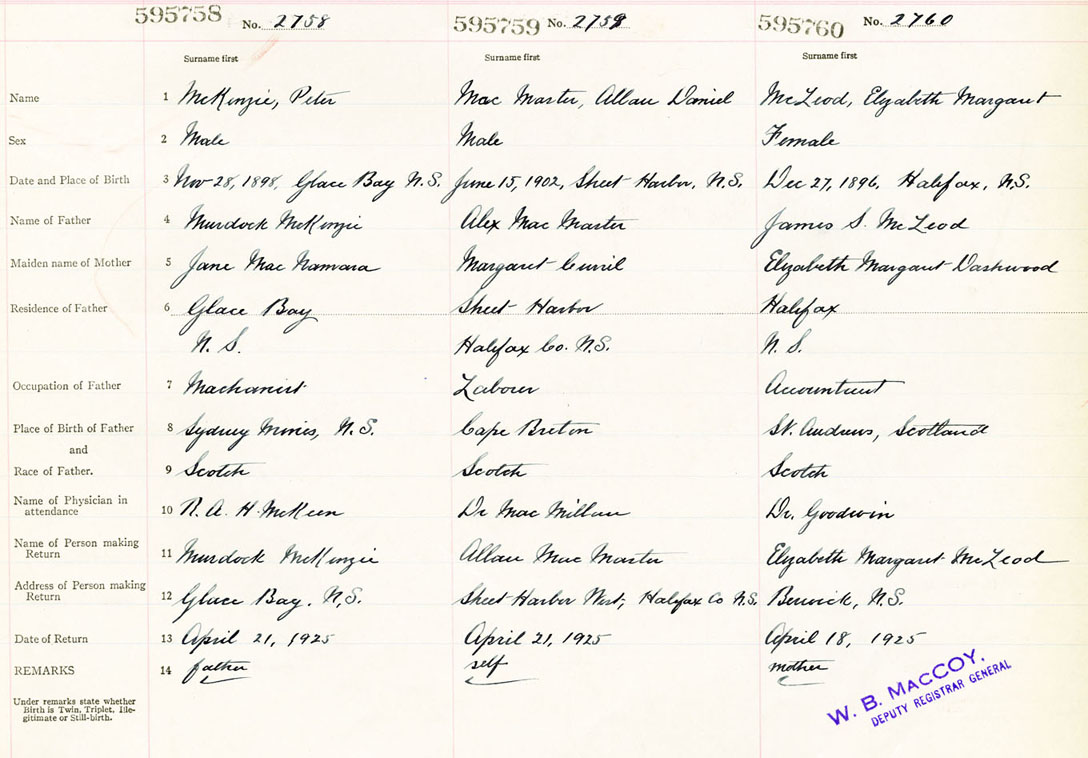 595758 No. 2758 595759 No. 2759 595760 No. 2760
Surname first Surname first Surname first
Name 1 McKenzie, Peter Mac Master, Allan Daniel McLeod, Elizabeth Margaret
Sex 2 Male Male Female
Date and Place of Birth 3 Nov 28, 1898, Glace Bay N.S. June 15, 1902, Sheet Harbor, N.S. Dec 27, 1896, Halifax, N.S.
Name of Father 4 Murdock McKenzie Alex Mac Master James S. McLeod
Maiden name of Mother 5 Jane Mac Namara Margaret Elizabeth Margaret Dashwood
Residence of Father 6 Glace Bay Sheet Harbor Halifax
N. S. Halifax Co. N.S. N. S.
Occupation of Father 7 Machanist Labourer Acountant
Place of Birth of Father 8 Sydney Mines, N.S. Cape Breton St. Andrews, Scotland
and
Race of Father. 9 Scotch Scotch Scotch
Name of Physician in
attendance 10 R. A. H. McKeen Dr Mac Millan Dr. Goodwin
Name of Person making
Return 11 Murdock McKenzie Allan Mac Master Elizabeth Margaret McLeod
Address of Person making
Return 12 Glace Bay. N.S. Sheet Harbor West, Halifax Co N.S. Berwick, N.S.
Date of Return 13 April 21, 1925 April 21, 1925 April 18, 1925
REMARKS 14 father self mother
Under remarks state whether
Birth is Twin, Triplet, Ille-
gitimate or Still-birth.
W. B. MACCOY,
DEPUTY REGISTRAR GENERAL